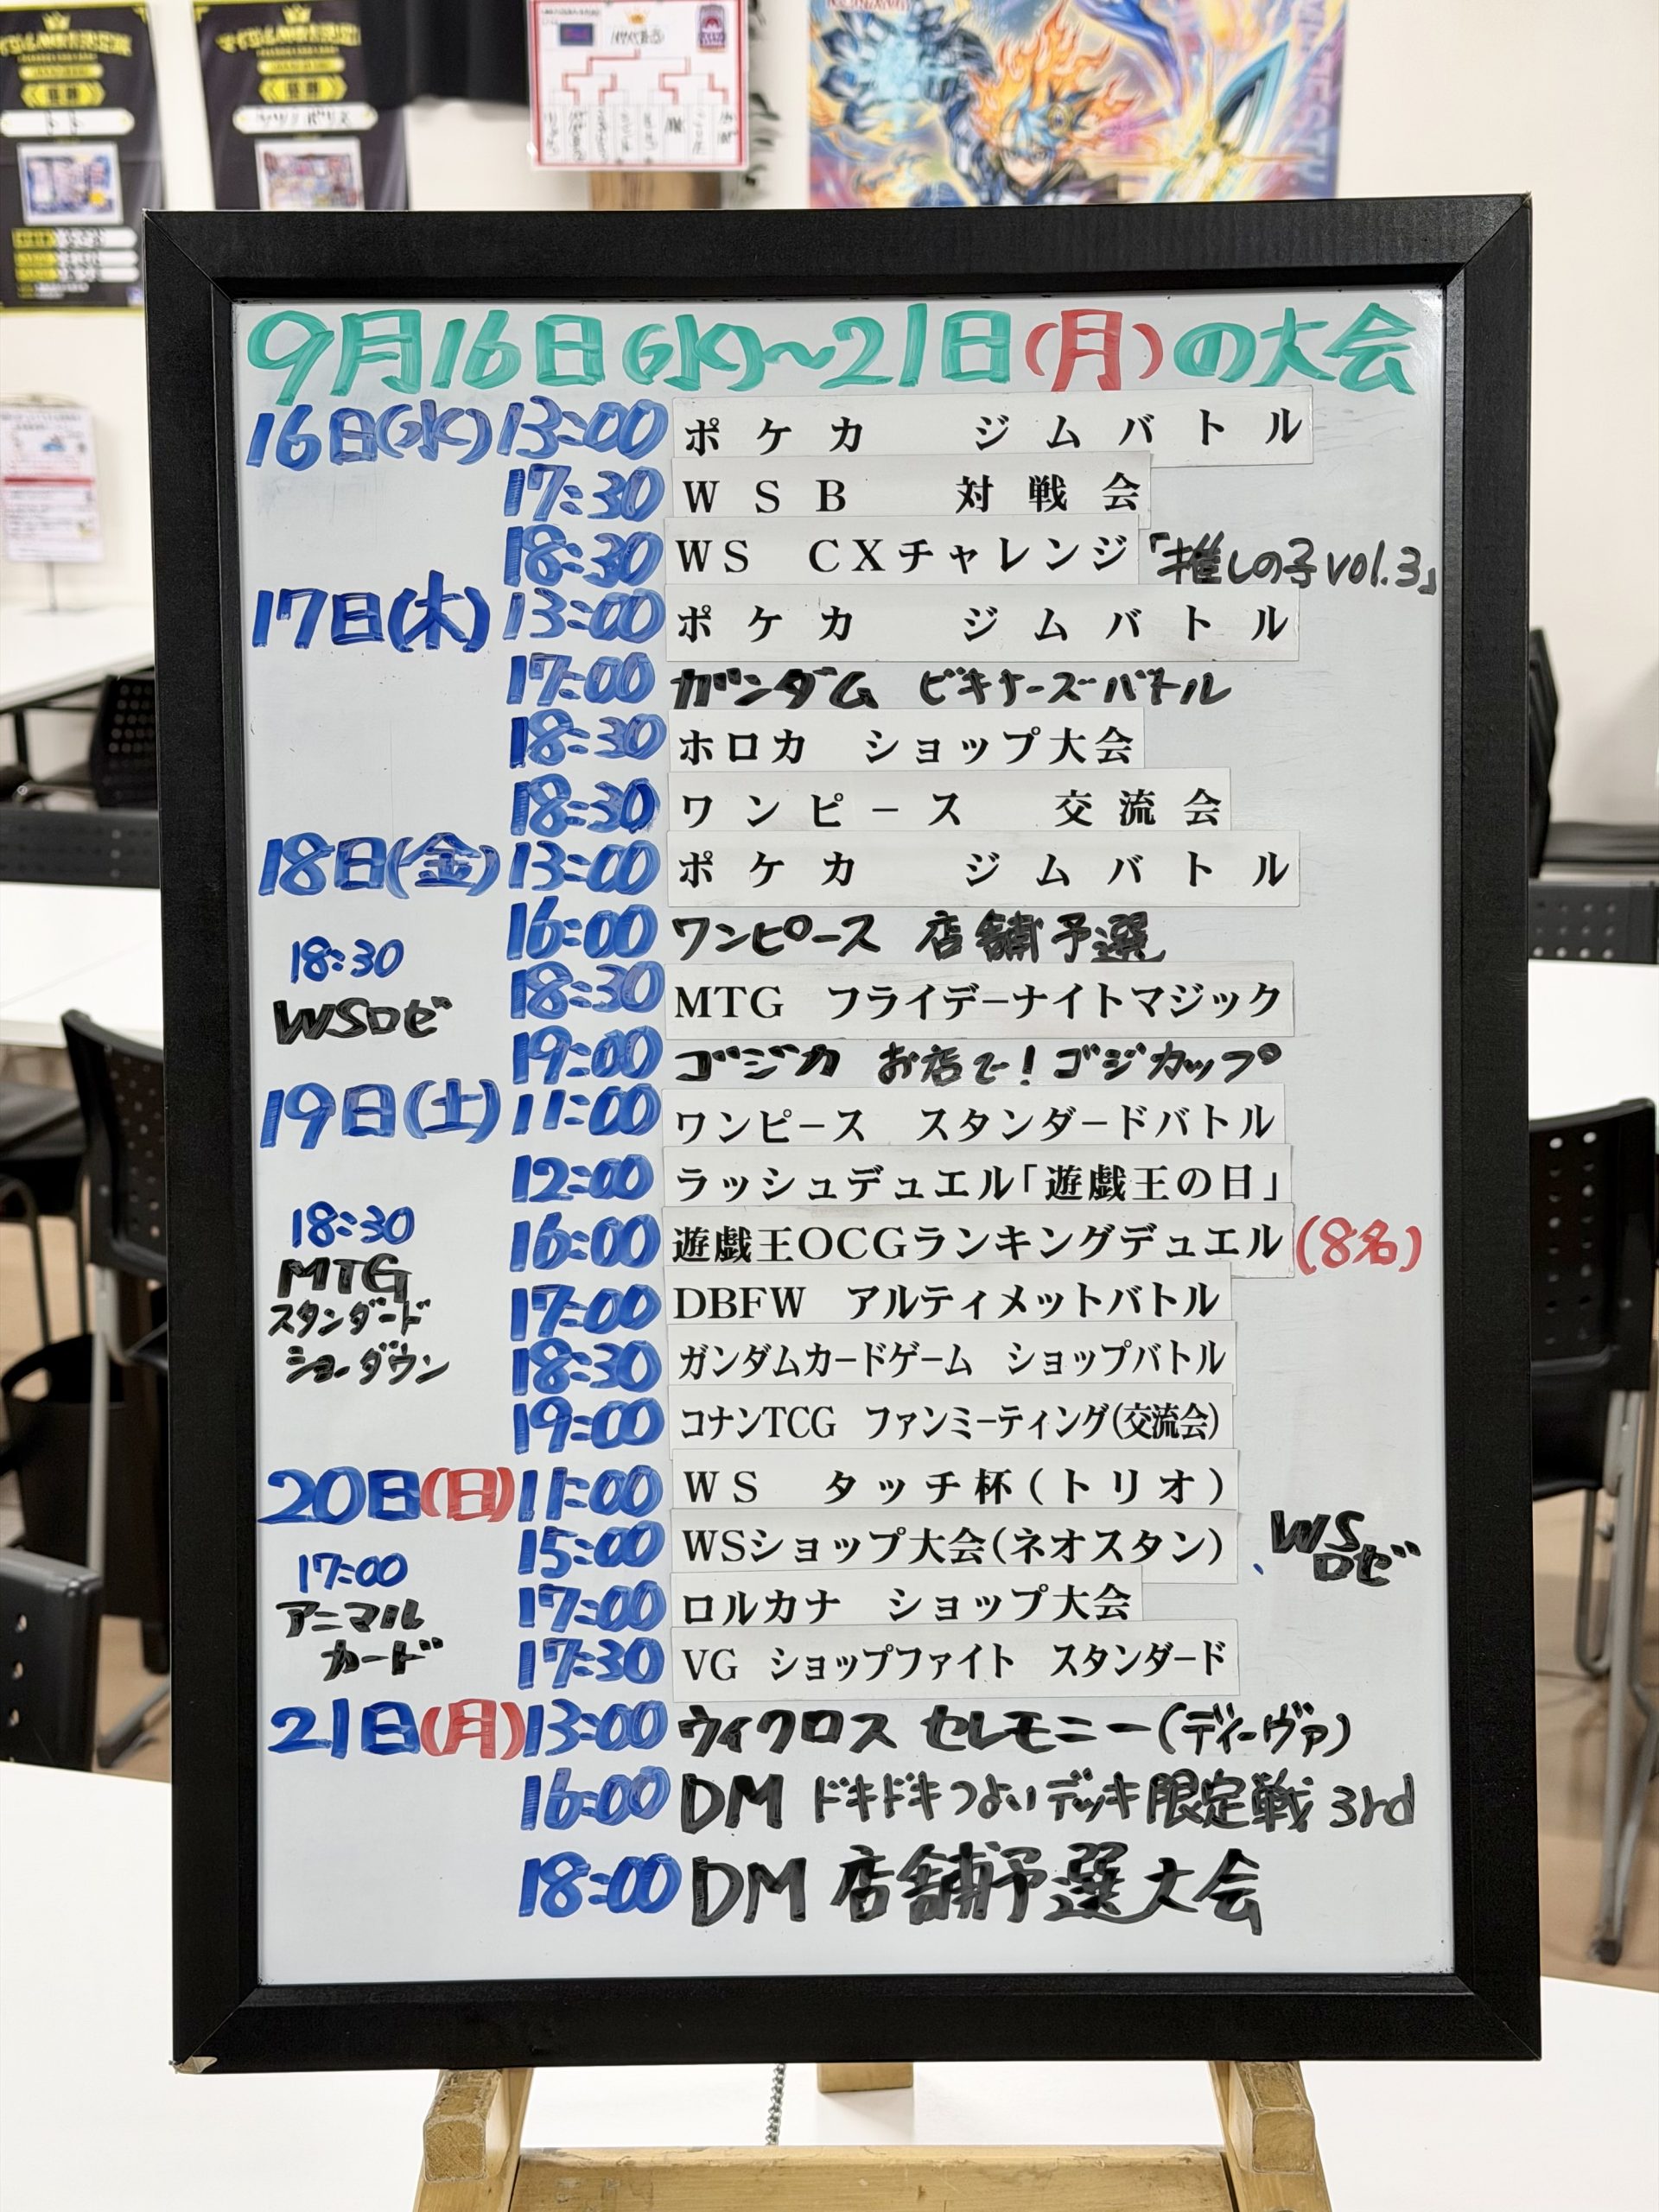 9月16日(水)～21日(月)の大会
16日(水) 13:00 ポケカ ジムバトル
17:30 WSB 対戦会
18:30 WS CXチャレンジ 「推しの子vol.3」
17日(木) 13:00 ポケカ ジムバトル
17:00 ガンダム ビギナーズバトル
18:30 ホロカ ショップ大会
18:30 ワンピース 交流会
18日(金) 13:00 ポケカ ジムバトル
16:00 ワンピース 店舗予選
18:30 WSロゼ
18:30 MTG フライデーナイトマジック
19:00 ゴジカ お店で!ゴジカップ
19日(土) 11:00 ワンピース スタンダードバトル
12:00 ラッシュデュエル「遊戯王の日」
16:00 遊戯王OCGランキングデュエル (8名)
18:30
MTG
スタンダード
ショーダウン
17:00 DBFW アルティメットバトル
18:30 ガンダムカードゲーム ショップバトル
19:00 コナンTCG ファンミーティング(交流会)
20日(日) 11:00 WS タッチ杯(トリオ)
15:00 WSショップ大会(ネオスタン) 、WS
ロゼ
17:00
アニマル
カード
17:00 ロルカナ ショップ大会
17:30 VG ショップファイト スタンダード
21日(月) 13:00 ウィクロス セレモニー(ディーヴァ)
16:00 DM ドキドキつよいデッキ限定戦 3rd
18:00 DM 店舗予選大会